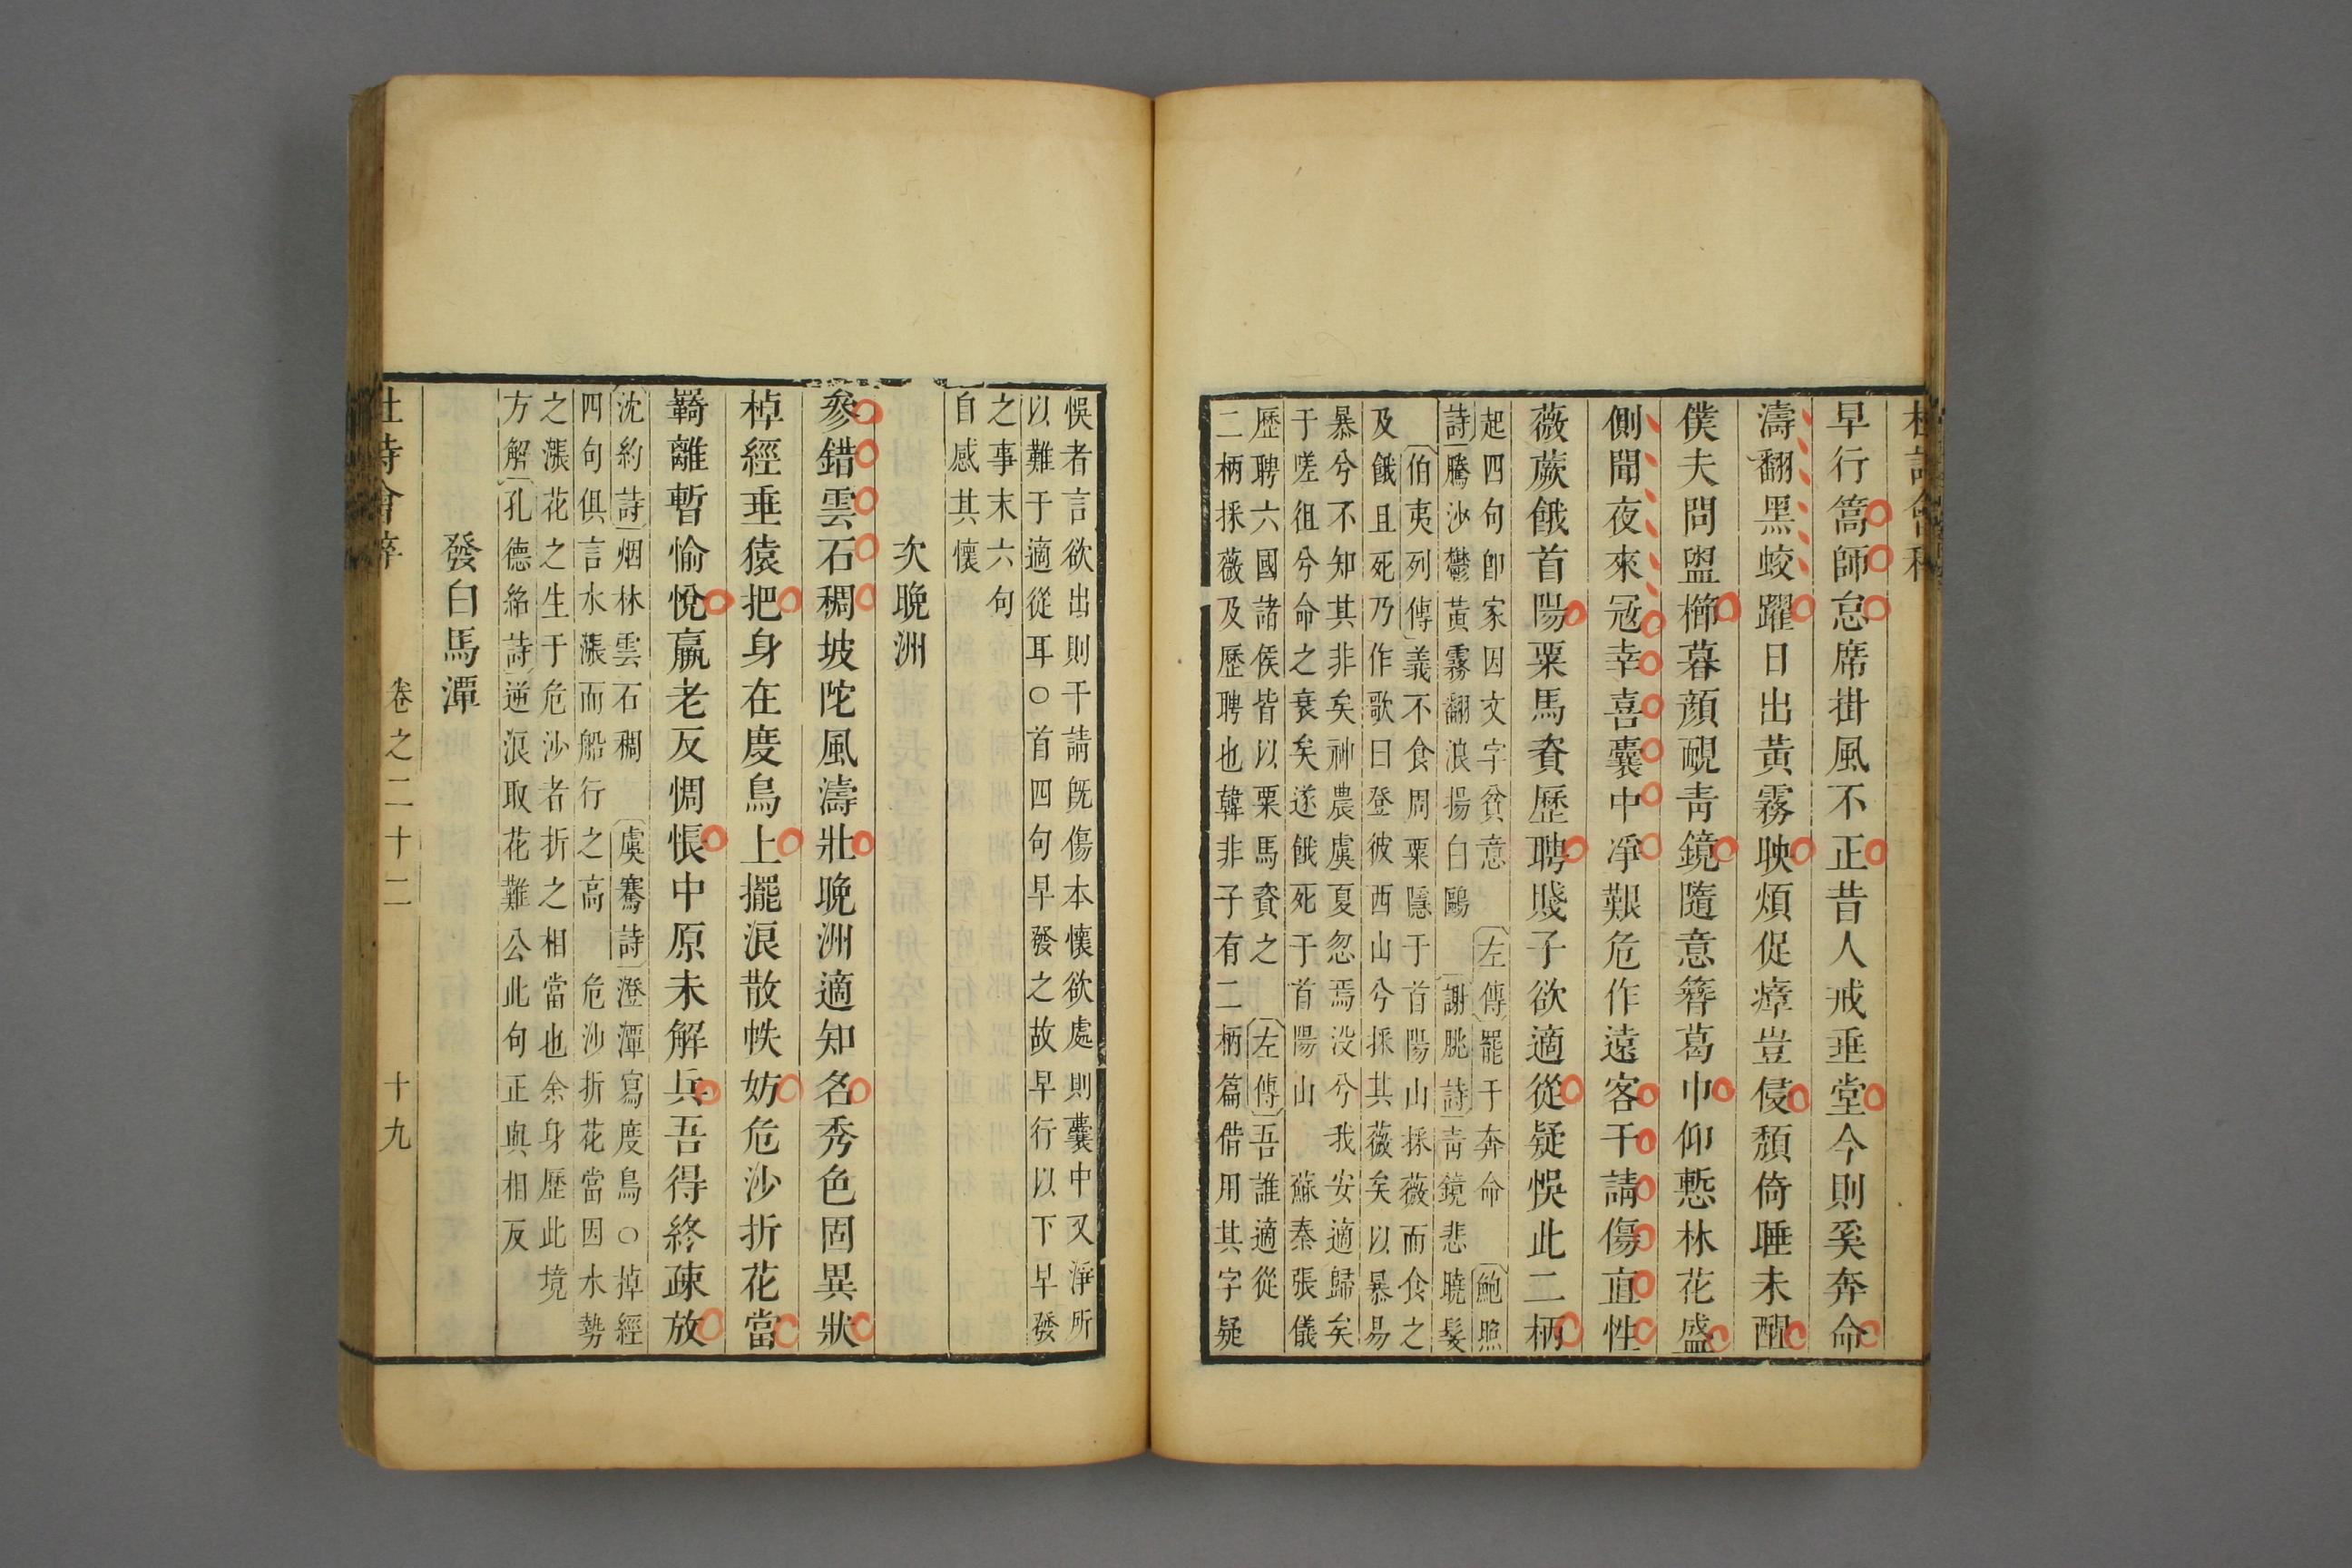 早行篙師怠席掛風不正昔人戒垂堂今則奚奔命
濤翻黑蛟躍日出黃霧映煩促瘴豈侵頹倚睡未醒
僕夫問盥櫛暮顏靦靑鏡隨意簪葛巾仰慙林花盛
側聞夜來冦幸喜囊中凈艱危作遠客干請傷直性
薇蕨餓首陽粟馬資歷聘賤子欲適從疑悞此二柄
起四句卽家因文字貧意 左傳罷于奔命 鮑照
詩騰沙鬱黃霧翻浪揚白鷗 謝朓詩靑鏡悲曉髮
伯夷列傳義不食周粟隱于首陽山採薇而食之
及餓且死乃作歌曰登彼西山兮採其薇矣以暴易
暴兮不知其非矣神農虞夏忽焉没兮我安適歸矣
于嗟徂兮命之衰矣遂餓死于首陽山 蘇秦張儀
歷聘六國諸侯皆以粟馬資之 左傳吾誰適從
二柄採薇及歷聘也韓非子有二柄篇借用其字疑
悞者言欲出則干請旣傷本懷欲處則囊中又淨所
以難于適從耳○首四句早發之故早行以下早發
之事末六句
自感其懷
次晚洲
參錯雲石稠坡陀風濤壯晚洲適知名秀色固異狀
棹經垂猿把身在度鳥上擺浪散帙妨危沙折花當
羇離暫愉悅羸老反惆悵中原未解兵吾得終疎放
沈約詩烟林雲石稠 虞騫詩澄潭寫度鳥○棹經
四句俱言水漲而船行之高 危沙折花當因水勢
之漲花之生于危沙者折之相當也余身歷此境
方解孔德紹詩逆浪取花難公此句正與相反
發白馬潭
卷之二十二 十九